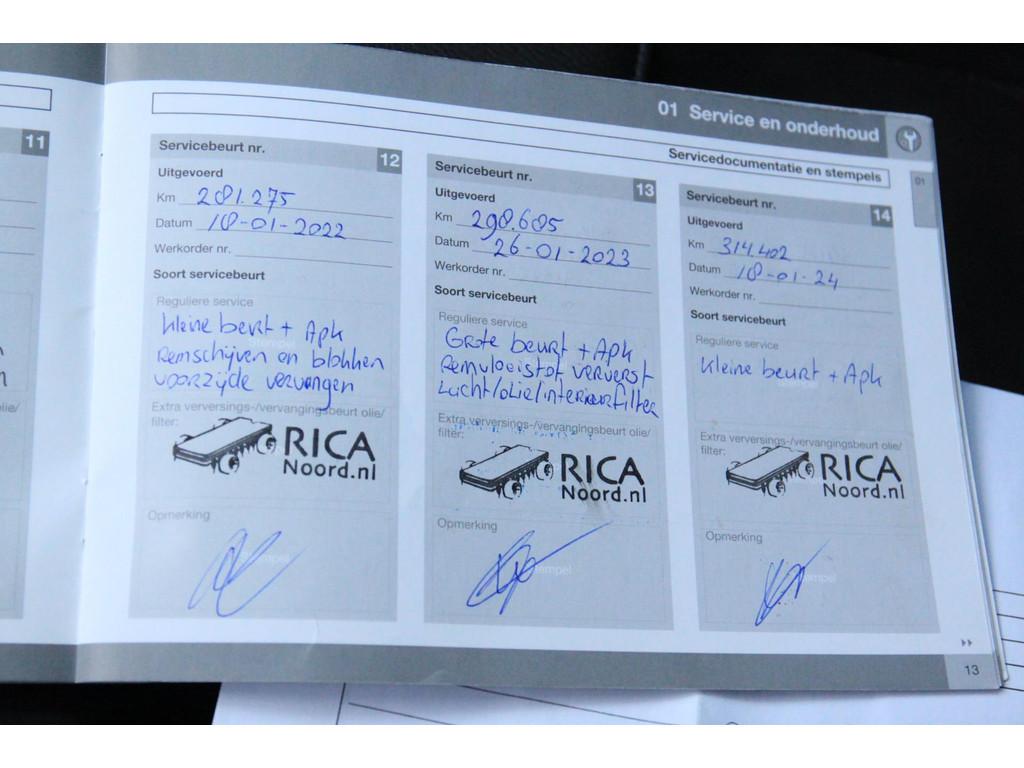 01 Service en onderhoud
Servicedocumentatie en stempels
01
11
Servicebeurt nr. 12
Uitgevoerd
Km 281.275
Datum 18-01-2022
Werkorder nr.
Soort servicebeurt
Reguliere service
Kleine beurt + Apk
Remschijven en blokken
voorzijde vervangen
Extra verversings-/vervangingsbeurt olie/
filter:
RICA
Noord.nl
Opmerking
Servicebeurt nr. 13
Uitgevoerd
Km 298.685
Datum 26-01-2023
Werkorder nr.
Soort servicebeurt
Reguliere service
Grote beurt + Apk
Remvloeistof ververst
Lucht/olie/interieurfilter
Extra verversings-/vervangingsbeurt olie/
filter:
RICA
Noord.nl
Opmerking
Stempel
Servicebeurt nr. 14
Uitgevoerd
Km 314.402
Datum 18-01-24
Werkorder nr.
Soort servicebeurt
Reguliere service
Kleine beurt + Apk
Extra verversings-/vervangingsbeurt olie/
filter:
RICA
Noord.nl
Opmerking
13